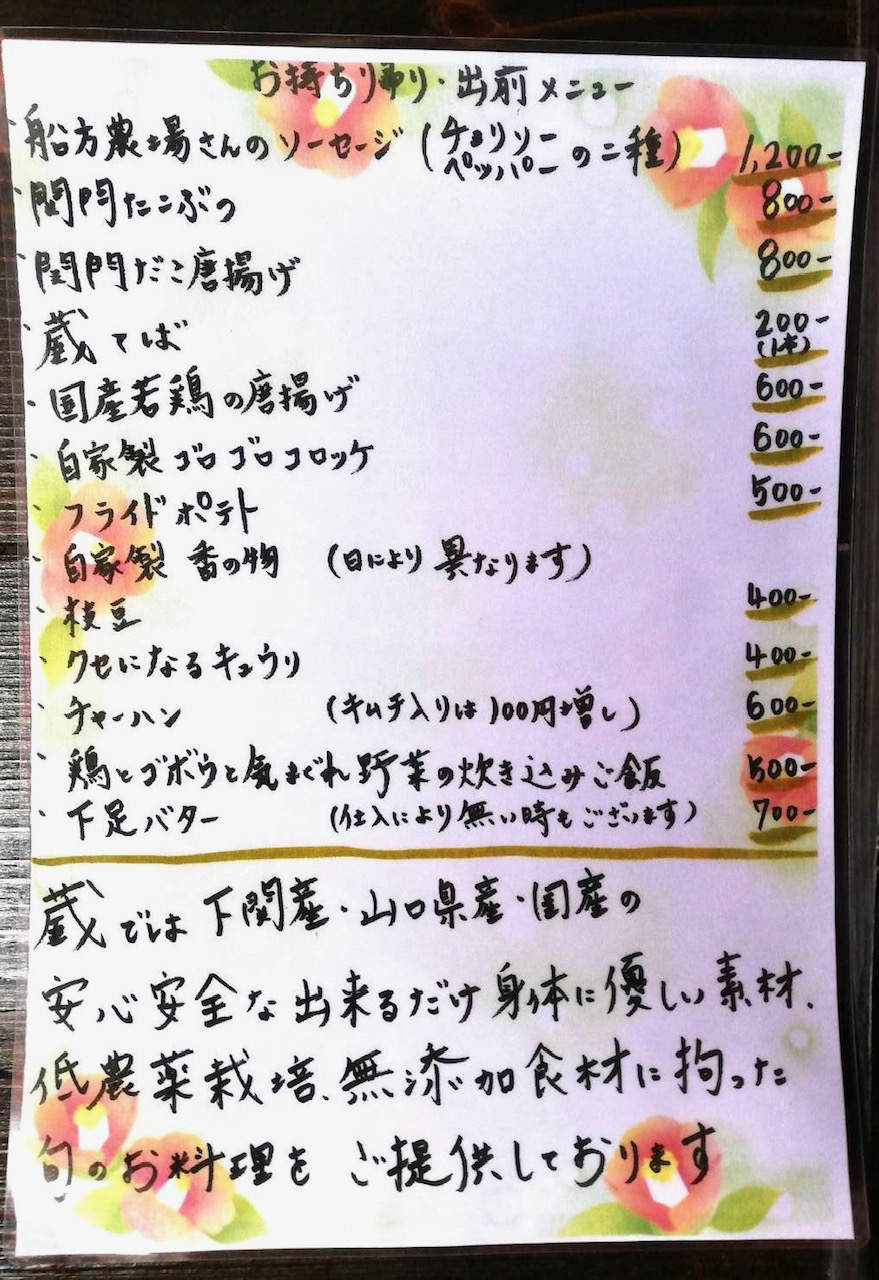 お持ち帰り・出前メニュー
・船方農場さんのソーセージ(チョリソー ペッパーの二種) 1,200-
・関門たこぶつ 800-
・関門だこ唐揚げ 800-
・蔵てば 200- (1本)
・国産若鶏の唐揚げ 600-
・自家製ゴロゴロコロッケ 600-
・フライドポテト 500-
・自家製 香の物 (日により異なります)
・枝豆 400-
・クセになるキュウリ 400-
・チャーハン (キムチ入りは100円増し) 600-
・鶏とゴボウと気まぐれ野菜の炊き込みご飯 500-
・下足バター (仕入により無い時もございます) 700-
蔵では下関産・山口県産・国産の
安心安全な出来るだけ身体に優しい素材、
低農薬栽培、無添加食材に拘った
旬のお料理を ご提供しております